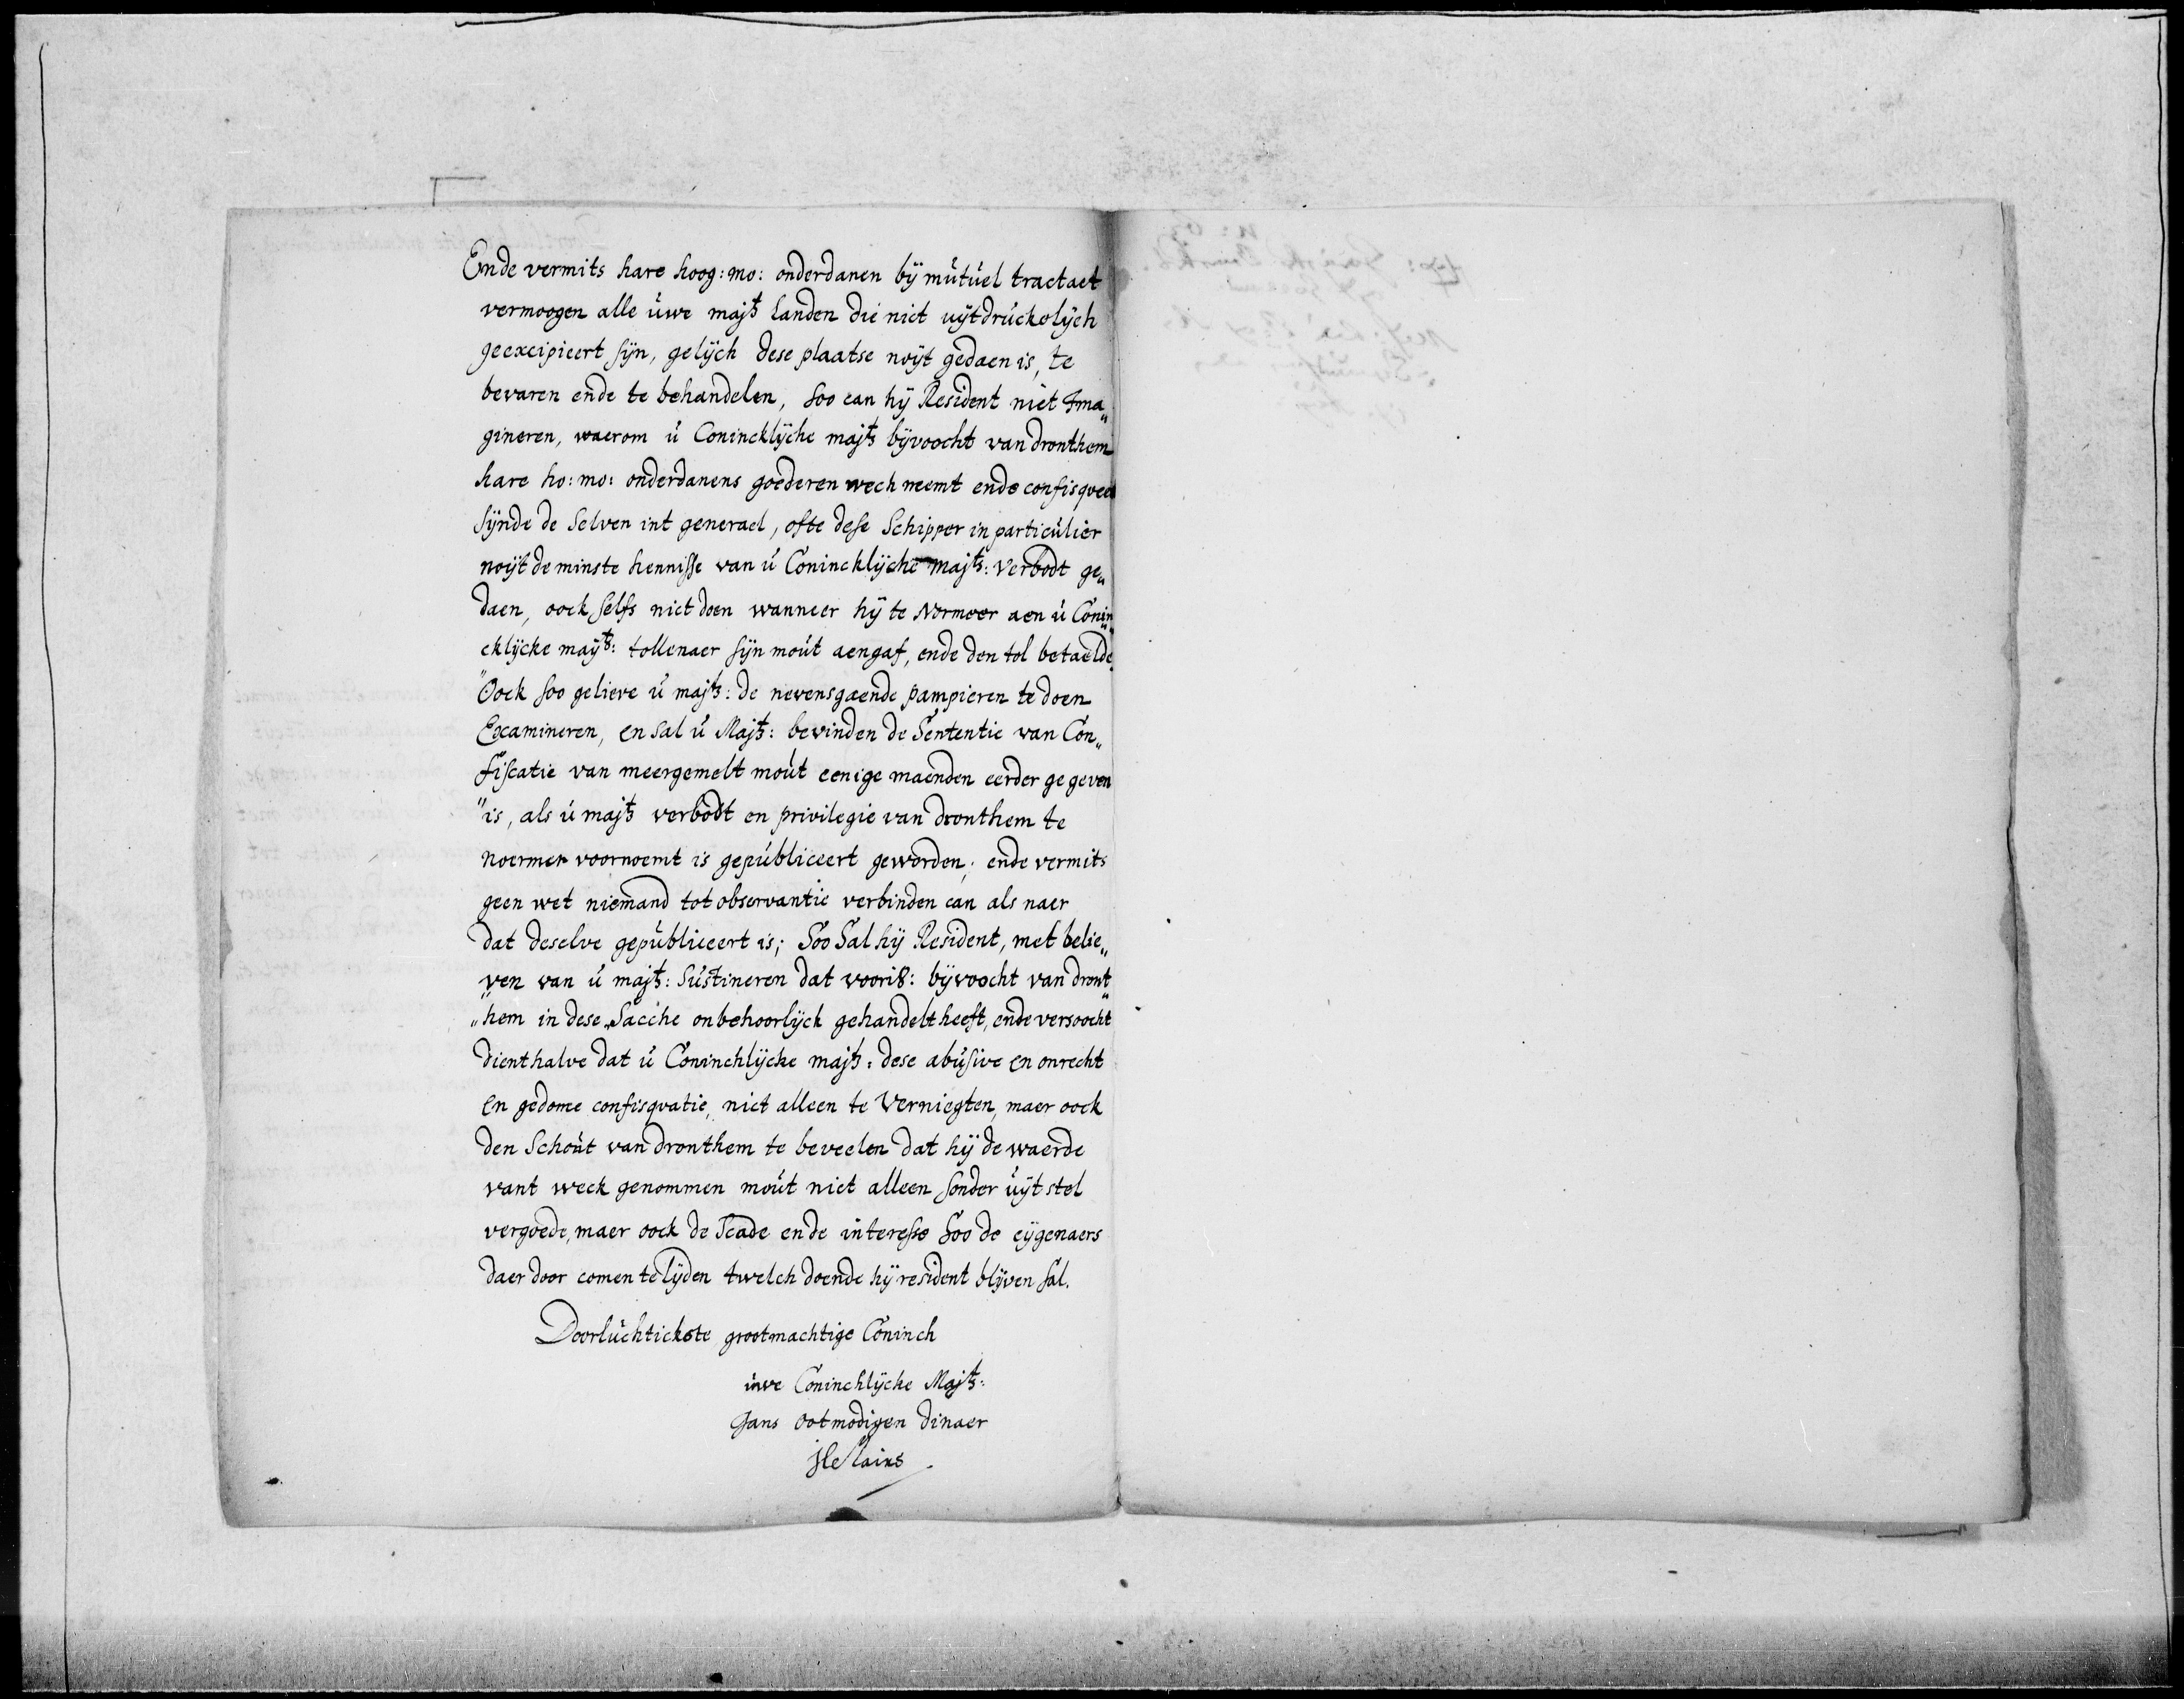 Ende vermits hare hoog: mo: onderdanen bÿ mutuel tractaet
vermoogen alle uwe majts landen die niet uÿtdruckelÿch
geexcipieert sÿn, gelÿch dese plaatse noÿt gedaen is, te
bevaren ende te behandelen, soo can hÿ Resident niet Ima„
gineren, waerom u Conincklÿche majts bÿvoocht van dronthem
hare ho: mo: onderdanens goederen wech neemt ende confisqveert
sÿnde de selven int generael, ofte dese Schipper in particulier
noÿt de minste kennisse van u Conincklÿche majts: verbodt ge„
daen, oock selfs niet doen wanneer hÿ te Normeer aen u Conin„
cklÿcke maÿts: tollenaer sÿn mout aengaf, ende den tol betaelde
Oock soo gelieve u majts: de nevensgaende pampieren te doen
Examineren, en sal u Majts: bevinden de Sententie van Con„
fiscatie van meergemelt mout eenige maenden eerder gegeven
is, als u majts verbodt en privilegie van dronthem te
noermer voornoemt is gepubliceert geworden; ende vermits
geen wet niemand tot observantie verbinden can als naer
dat deselve gepubliceert is; Soo Sal hÿ Resident, met belie„
ven van u majts: Sustineren dat voors: bÿvoocht van dront„
„hem in dese Sacche onbehoorlÿck gehandelt heeft, ende versoocht
dienthalve dat u Coninchlÿcke majts: dese abusive en onrecht
en gedome confisqvatie, niet alleen te Verniegten, maer oock
den Schout van dronthem te beveelen dat hÿ de waerde
vant weck genommen mout niet alleen sonder uÿtstel
vergoede, maer oock de Scade ende interesse soo de eÿgenaers
daer door comen te lÿden twelch doende hÿ resident blÿven sal.
Doorluchtickste grootmachtige Coninch
uwe Coninchlÿcke Majts:
Gans ootmodigen dinaer